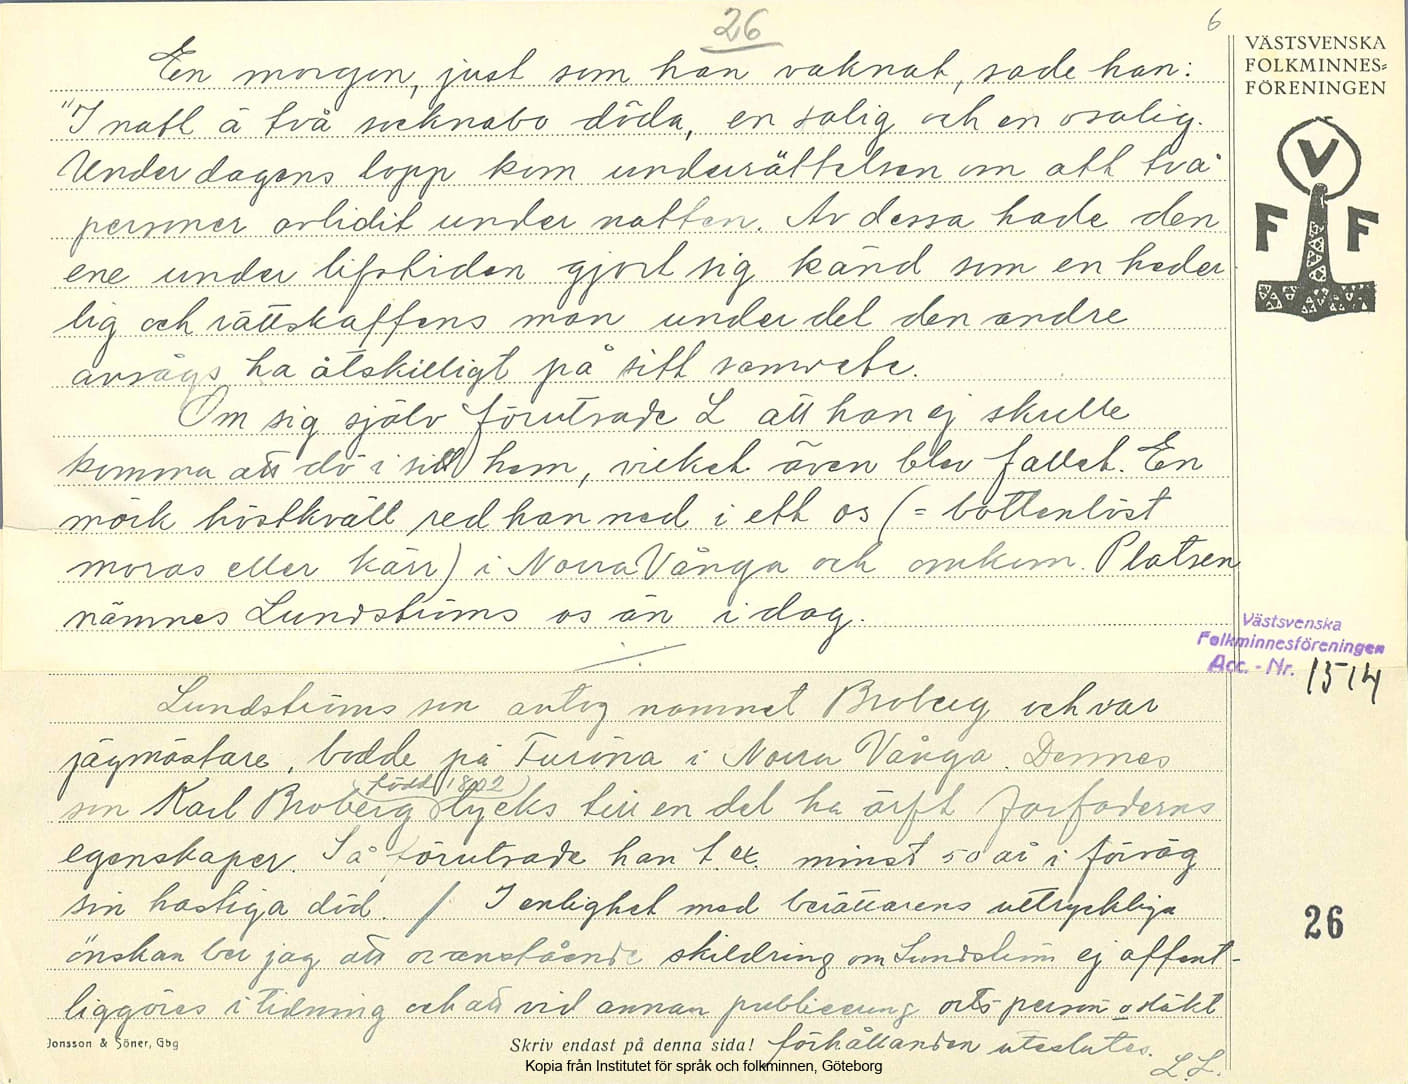 26
6
VÄSTSVENSKA
FOLKMINNES=
FÖRENINGEN
V
F F
En morgon, just som han vaknat, sade han:
"I natt ä två socknabo döda, en salig och en osalig.
Under dagens lopp kom underrättelsen om att två
personer avlidit under natten. Av dessa hade den
ene under lifstiden gjort sig känd som en heder
lig och rättskaffens man under det den andre
ansågs ha åtskilligt på sitt samvete.
Om sig själv förutsade L att han ej skulle
komma att dö i sitt hem, vilket även blev fallet. En
mörk höstkväll red han ned i ett os (= bottenlöst
moras eller kärr) i Norra Vånga och omkom. Platsen
nämnes Lundströms os än i dag.
Västsvenska
Folkminnesföreningen
Acc. - Nr. 1514
Lundströms son antog namnet Broberg och var
jägmästare, bodde på Furöna i Norra Vånga. Dennes
född 1802
son Karl Broberg tycks till en del ha ärft forfaderns
egenskaper. Så förutsade han t.ex. minst 50 år i förväg
sin hastiga död. / I enlighet med berättarens uttryckliga
önskan ber jag att ovanstående skildring om Lundström ej offent-
liggöres i tidning och att vid annan publicering orts- person- o släkt
förhållanden uteslutes.
L.L.
26
Jonsson & Söner, Gbg
Skriv endast på denna sida!
Kopia från Institutet för språk och folkminnen, Göteborg